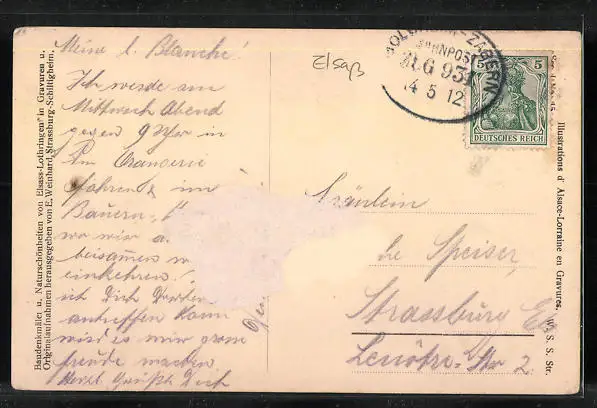 Meine l. Blanche!
Ich werde am
Mittwoch Abend
gegen 9 Uhr in
Orangerie
fahren & im
Bauern-
wo wir a.
beisammen
einkehren!
ich Dich
antreffen kann
wird es mir grosse
freude machen
Herzl. Grüsst Dich
Elsaß
ZABERN
BAHNPOST
ZUG 93
14 5 12
5 5
DEUTSCHES REICH
Fräulein
Speiser
Strassburg Els
Lenôtre-Str 2
Baudenkmäler u. Naturschönheiten von Elsass-Lothringen" in Gravuren u.
Originalaufnahmen herausgegeben von E. Weinhard, Strassburg-Schiltigheim.
Illustrations d' Alsace-Lorraine en Gravures. W. S. S. Str.